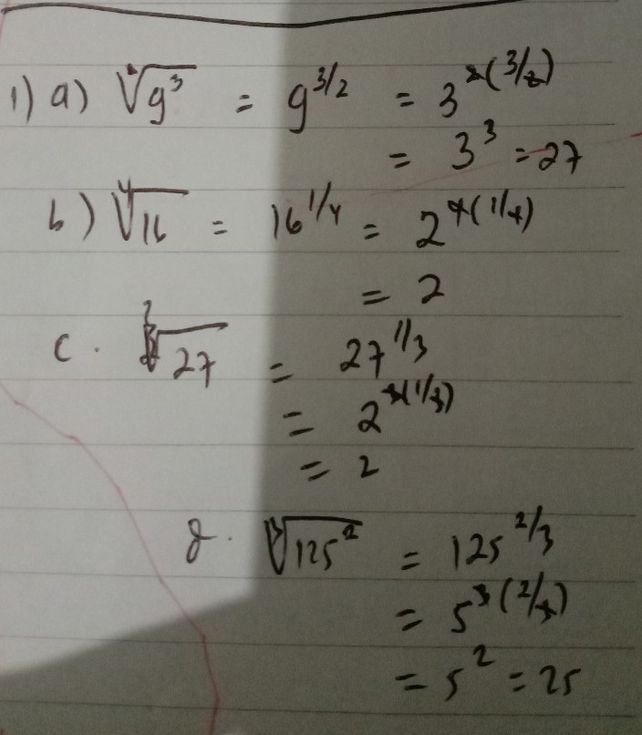 1) a) √9³ = 9^{3/2} = 3^{2(3/2)}
= 3³ = 27
b) ⁴√16 = 16^{1/4} = 2^{4(1/4)}
= 2
c. ³√27 = 27^{1/3}
= 2^{3(1/3)}
= 2
d. ³√125² = 125^{2/3}
= 5^{3(2/3)}
= 5² = 25